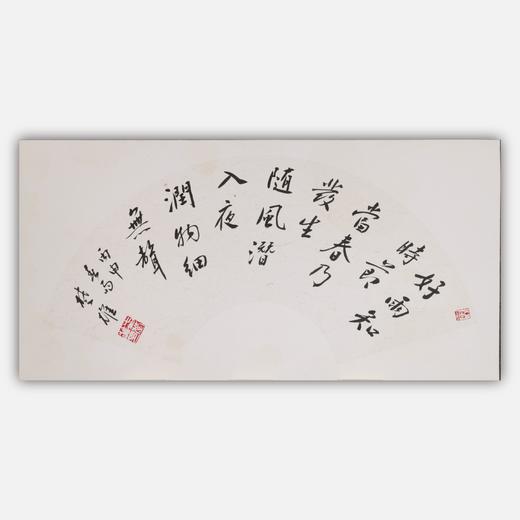 好雨知
時節
當春乃
發生
随風潛
入夜
潤物細
無聲
丙申
春雨
楚雄